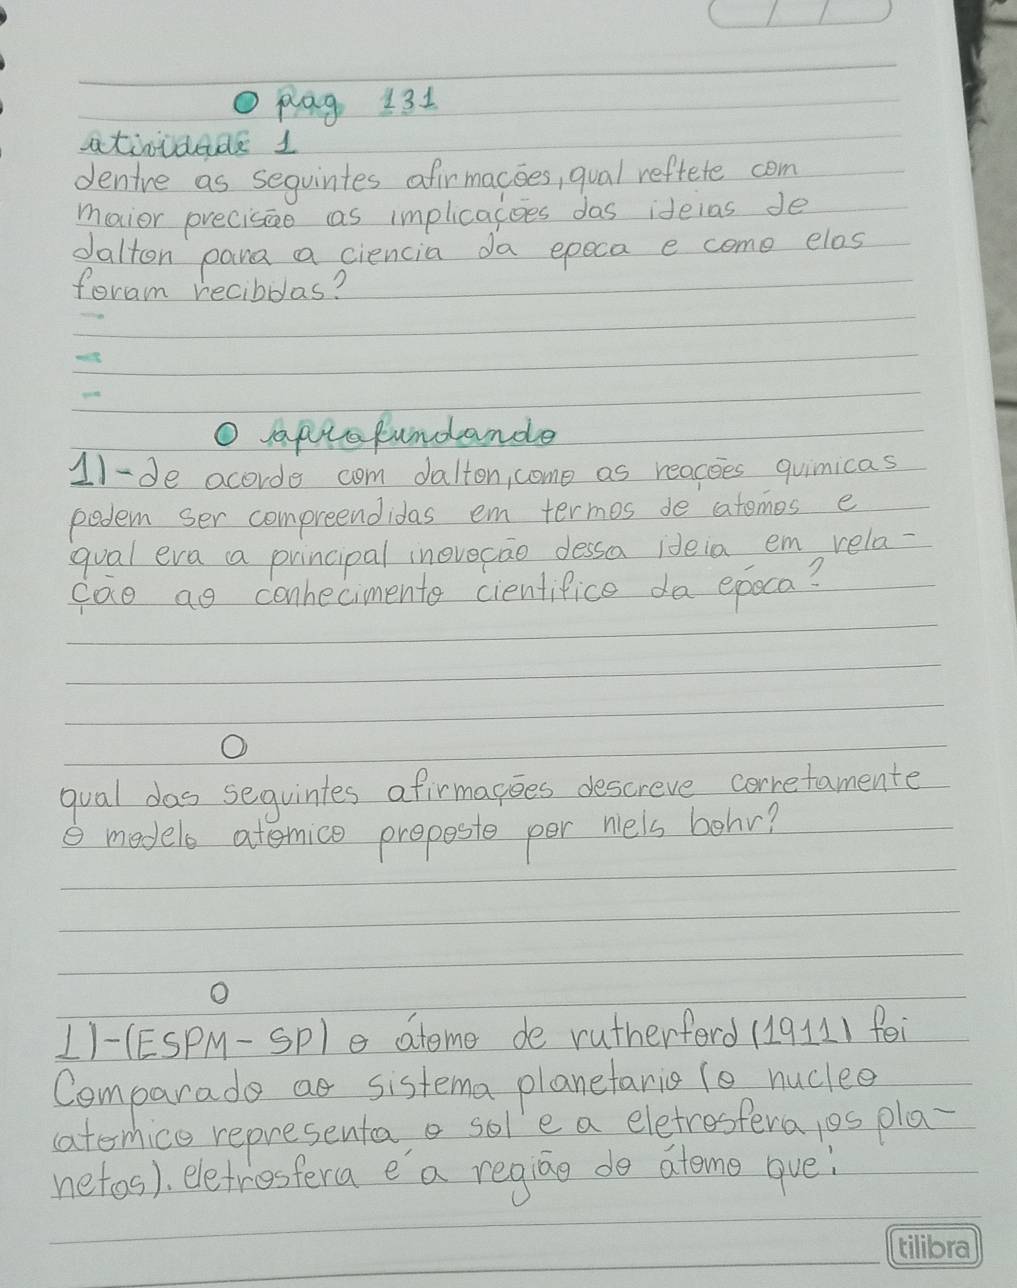 pag 131
atividade 1
dentre as seguintes afirmações, qual reftete com
maior precisão as implicações das ideias de
dalton para a ciencia da epoca e como elas
foram recibidas?
aprofundando
1)-de acordo com dalton, como as reações quimicas
podem ser compreendidas em termos de atomos e
qual era a principal inovoção dessa ideia em rela-
ção ao conhecimento cientifico da época?
qual das seguintes afirmações descreve corretamente
o modelo atomico proposto por niels bohr?
1)-(ESPM-SP) o átomo de rutherford (1911) foi
Comparado ao sistema planetario (o nucleo
atomico representa o sol e a eletrosfera, os pla-
netos). eletrosfera é a região do átomo que:
tilibra